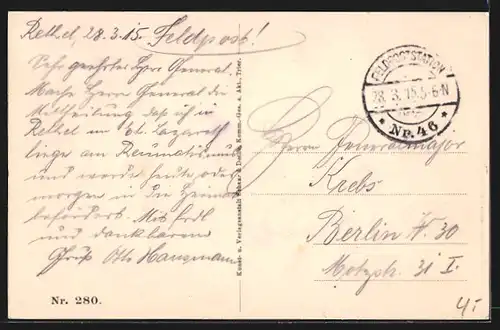 Rethel, 28.3.15. Feldpost!
Sehr geehrter Herr General.
Mache Herrn General die
Mitteilung daß ich in
Rethel im Et. Lazareth
liege am Reumatismus
und werde heute oder
morgen in die Heimat
befördert. Mit frdl
und dankbarem
Gruß Otto Hausmann
Nr. 280.
Kunst- u. Verlagsanstalt Schaar & Dathe, Komm.-Ges. a. Akt., Trier.
FELDPOSTSTATION
28. 3. 15. 5-6 N
* NR. 46 *
Herrn Generalmajor
Krebs
Berlin W. 30
Motzstr. 31 I.
4,-